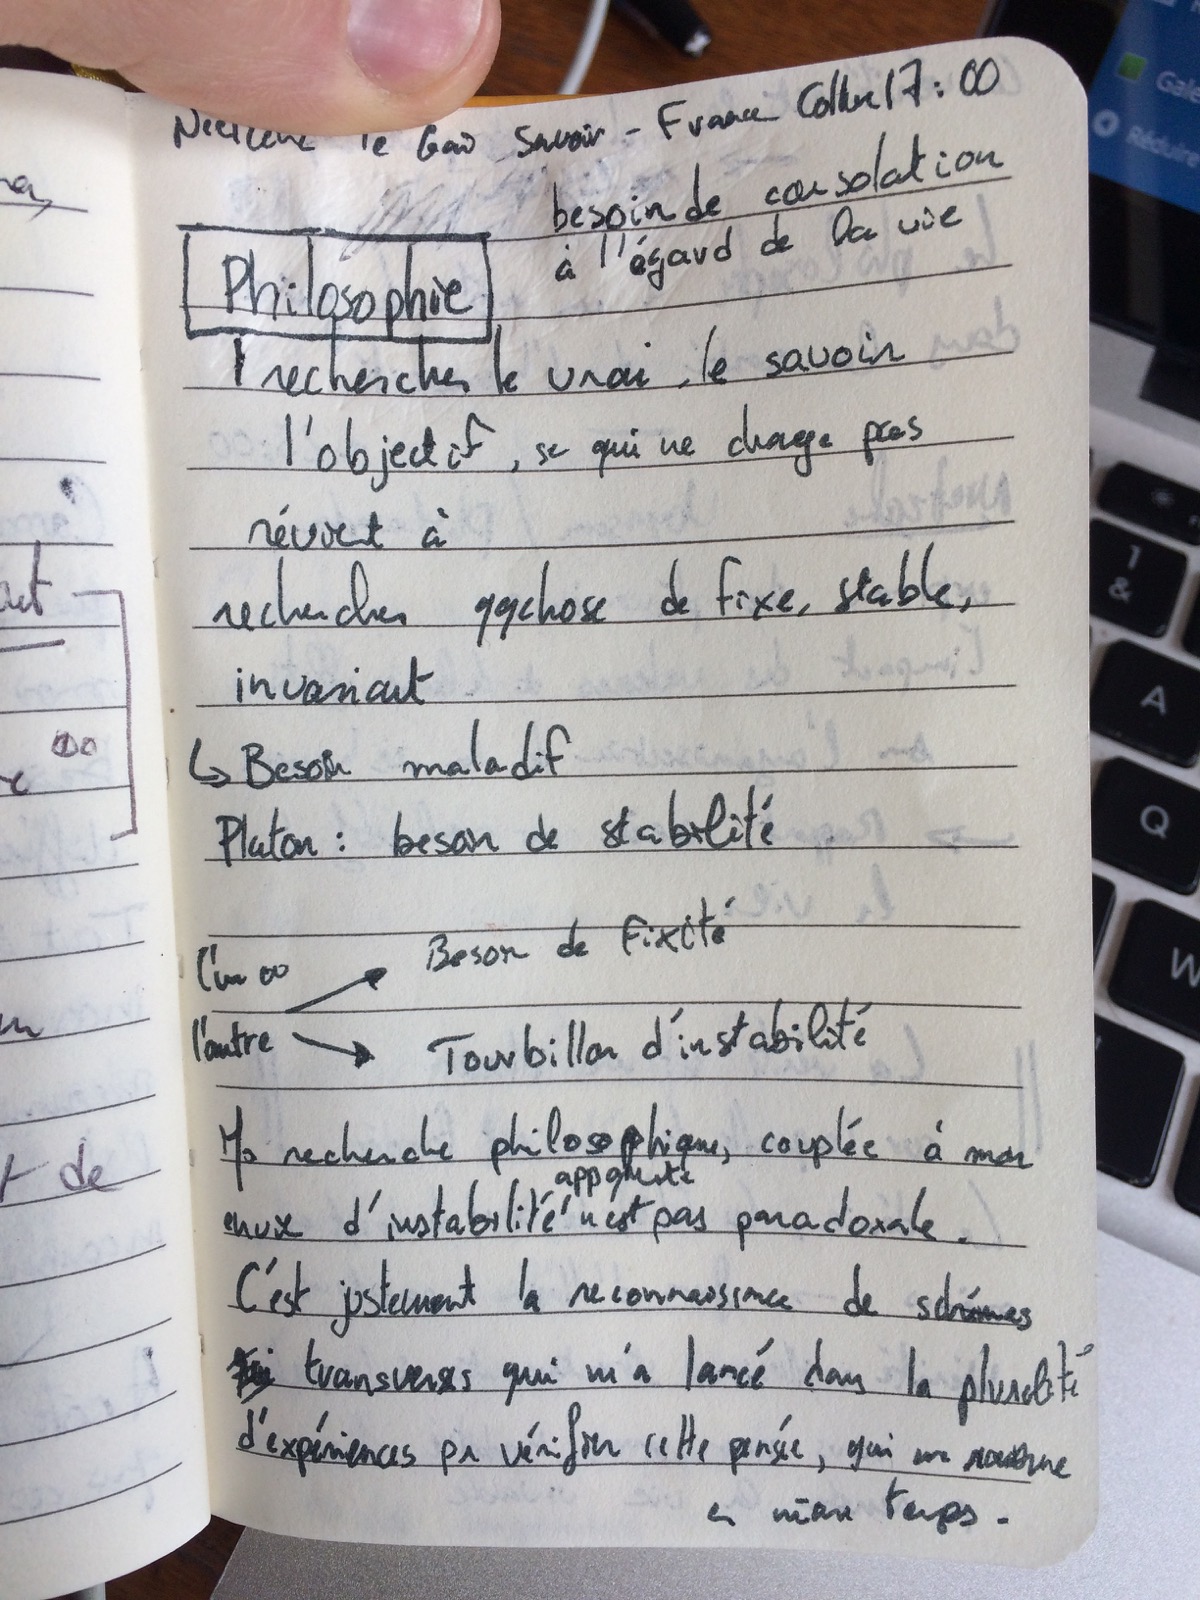 Nietzsche le Gai Savoir - France Culture 17:00
besoin de consolation
à l'égard de la vie
Philosophie
rechercher le vrai, le savoir
l'objectif, se qui ne change pas
révient à
rechercher qqchose de fixe, stable,
invariant
↳ Besoin maladif
Platon : besoin de stabilité
l'un ∞
Besoin de Fixité
l'autre
Tourbillon d'instabilité
Ma recherche philosophique, couplée à mon
apparente
envie d'instabilité n'est pas paradoxale.
C'est justement la reconnaissance de schémes
transverses qui m'a lancé dans la pluralité
d'expériences pr vérifier cette pensée, qui me
en même temps.
ant
∞
t de
Réduire
1
&
A
Q
W